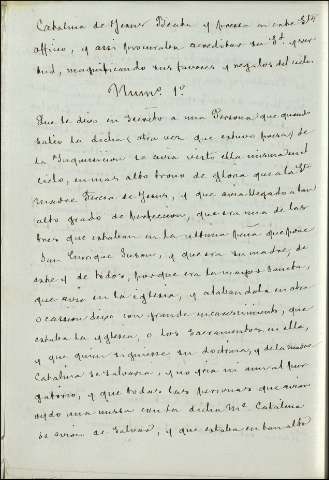 Catalina de Jesus Beata y presa en este S.to
officio, y assi procuraban acreditar su S.d y ver
tud, magnificando sus favores y regalos del cielo.
Num.o 1.o
Que se dixo en secreto a una Persona que quando
salio la dicha (otra vez que estuvo presa) de
la Inquisicion se avia visto ella misma en el
cielo, en mas alto trono de gloria que a la S.ta
Madre Teresa de Jesus, y que avia llegado a tan
alto grado de perfeccion, que era una de las
tres que estaban en la ultima peña que pone
San Enrique Suson, y que era su madre, de
este y de todos, porque era la mayor Santa,
que avia en la iglesia, y alabandola en otra
ocassion dixo con grande encarecimiento, que
estaba la yglesia, o los Sacramentos en ella,
y que quien siguiesse su doctrina, y de la madre
Catalina se salvaria, y no yria su anima al pur
gatorio, y que todas las personas que avian
oydo una missa con la dicha M.e Catalina
se avian de salvar, y que estaba en tan alto